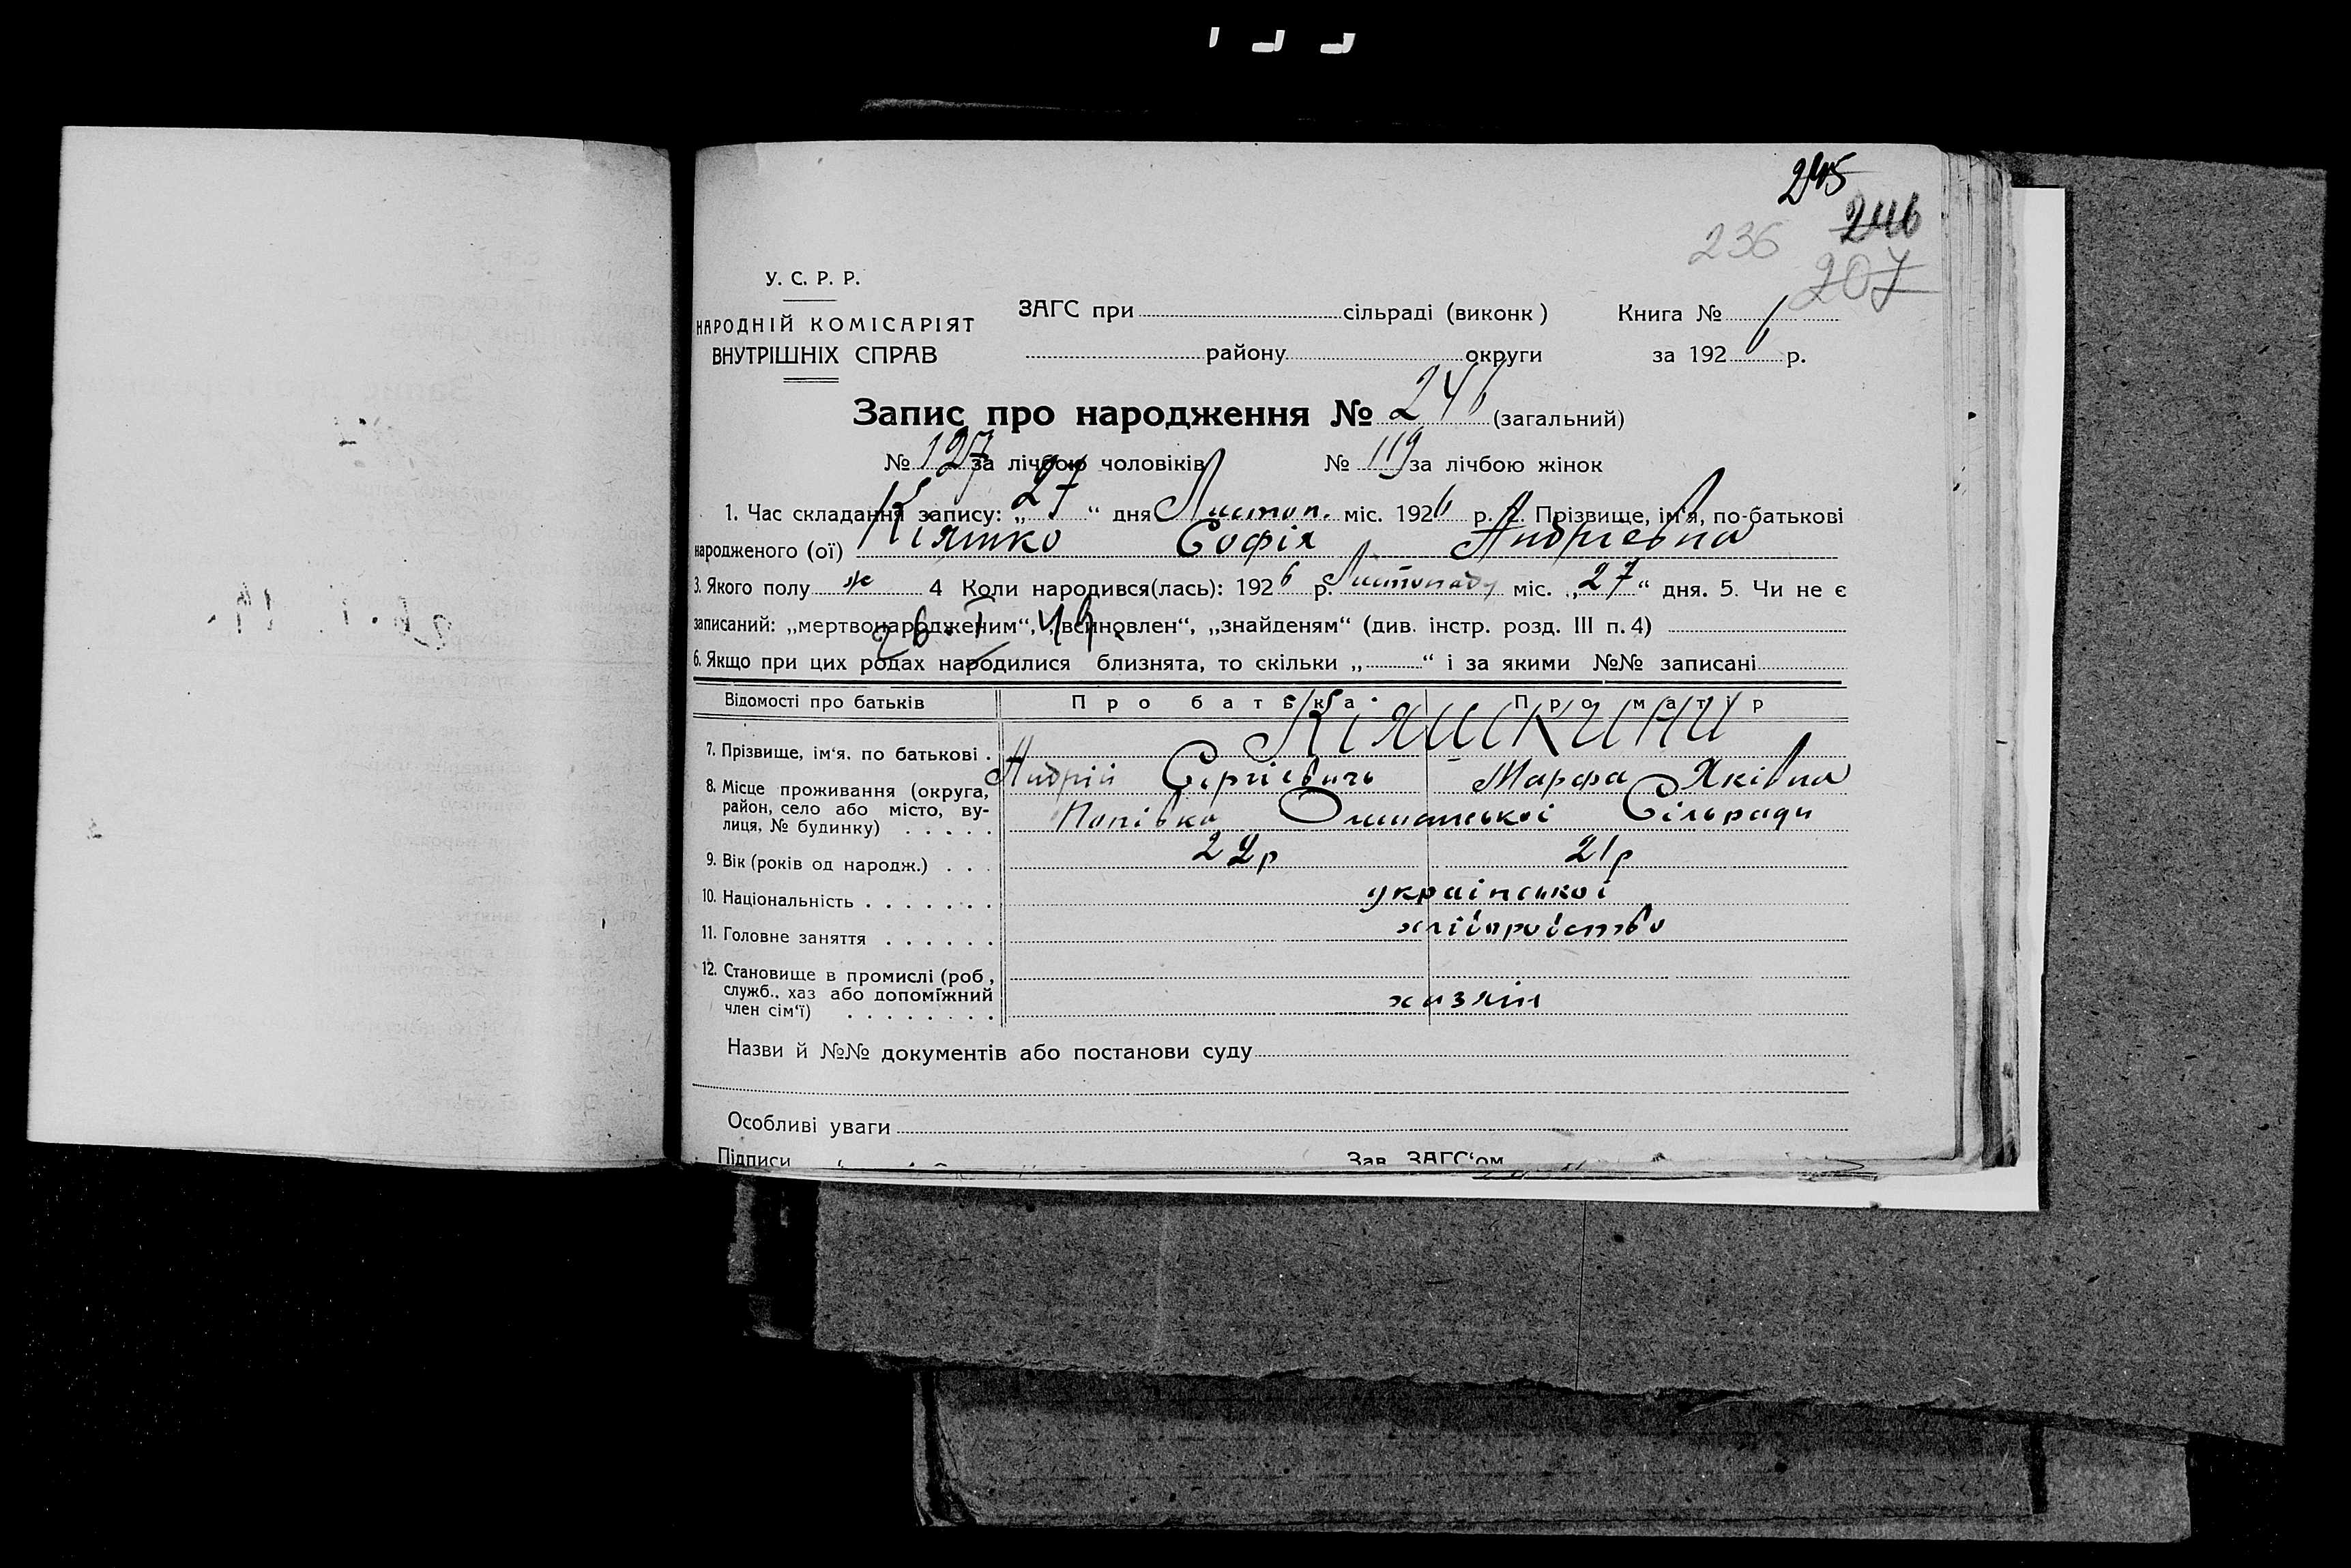 245
246
236
207
У. С. Р. Р.
НАРОДНІЙ КОМІСАРІЯТ
ВНУТРІШНІХ СПРАВ
ЗАГС при сільраді (виконк) Книга №
району округи за 1926 р.
Запис про народження № 246 (загальний)
№ 127 за лічбою чоловіків № 119 за лічбою жінок
1. Час складання запису: „27“ дня Листоп. міс. 1926 р. 2. Прізвище, ім'я, по-батькові
народженого (ої) Кіяшко Софія Андрієвна
3. Якого полу ж 4 Коли народився(лась): 1926 р. Листопаду міс. „27“ дня. 5. Чи не є
записаний: „мертвонародженим“, „всиновлен“, „знайденям“ (див. інстр. розд. III п. 4)
6. Якщо при цих родах народилися близнята, то скільки „ “ і за якими №№ записані
Відомості про батьків Про батька Про матір
7. Прізвище, ім'я. по батькові . Кіяшкини
Андрій Сергієвичь Марфа Яківна
8. Місце проживання (округа, район, село або місто, вулиця, № будинку) . . . . . Попівка Сільради
9. Вік (років од народж.) . . . 22р 21р
10. Національність . . . . . . . української
11. Головне заняття . . . . . . хліборобство
12. Становище в промислі (роб, служб., хаз або допоміжний член сім'ї) . . . . . . . . хазяін
Назви й №№ документів або постанови суду
Особливі уваги
Підписи Зав. ЗАГС'ом